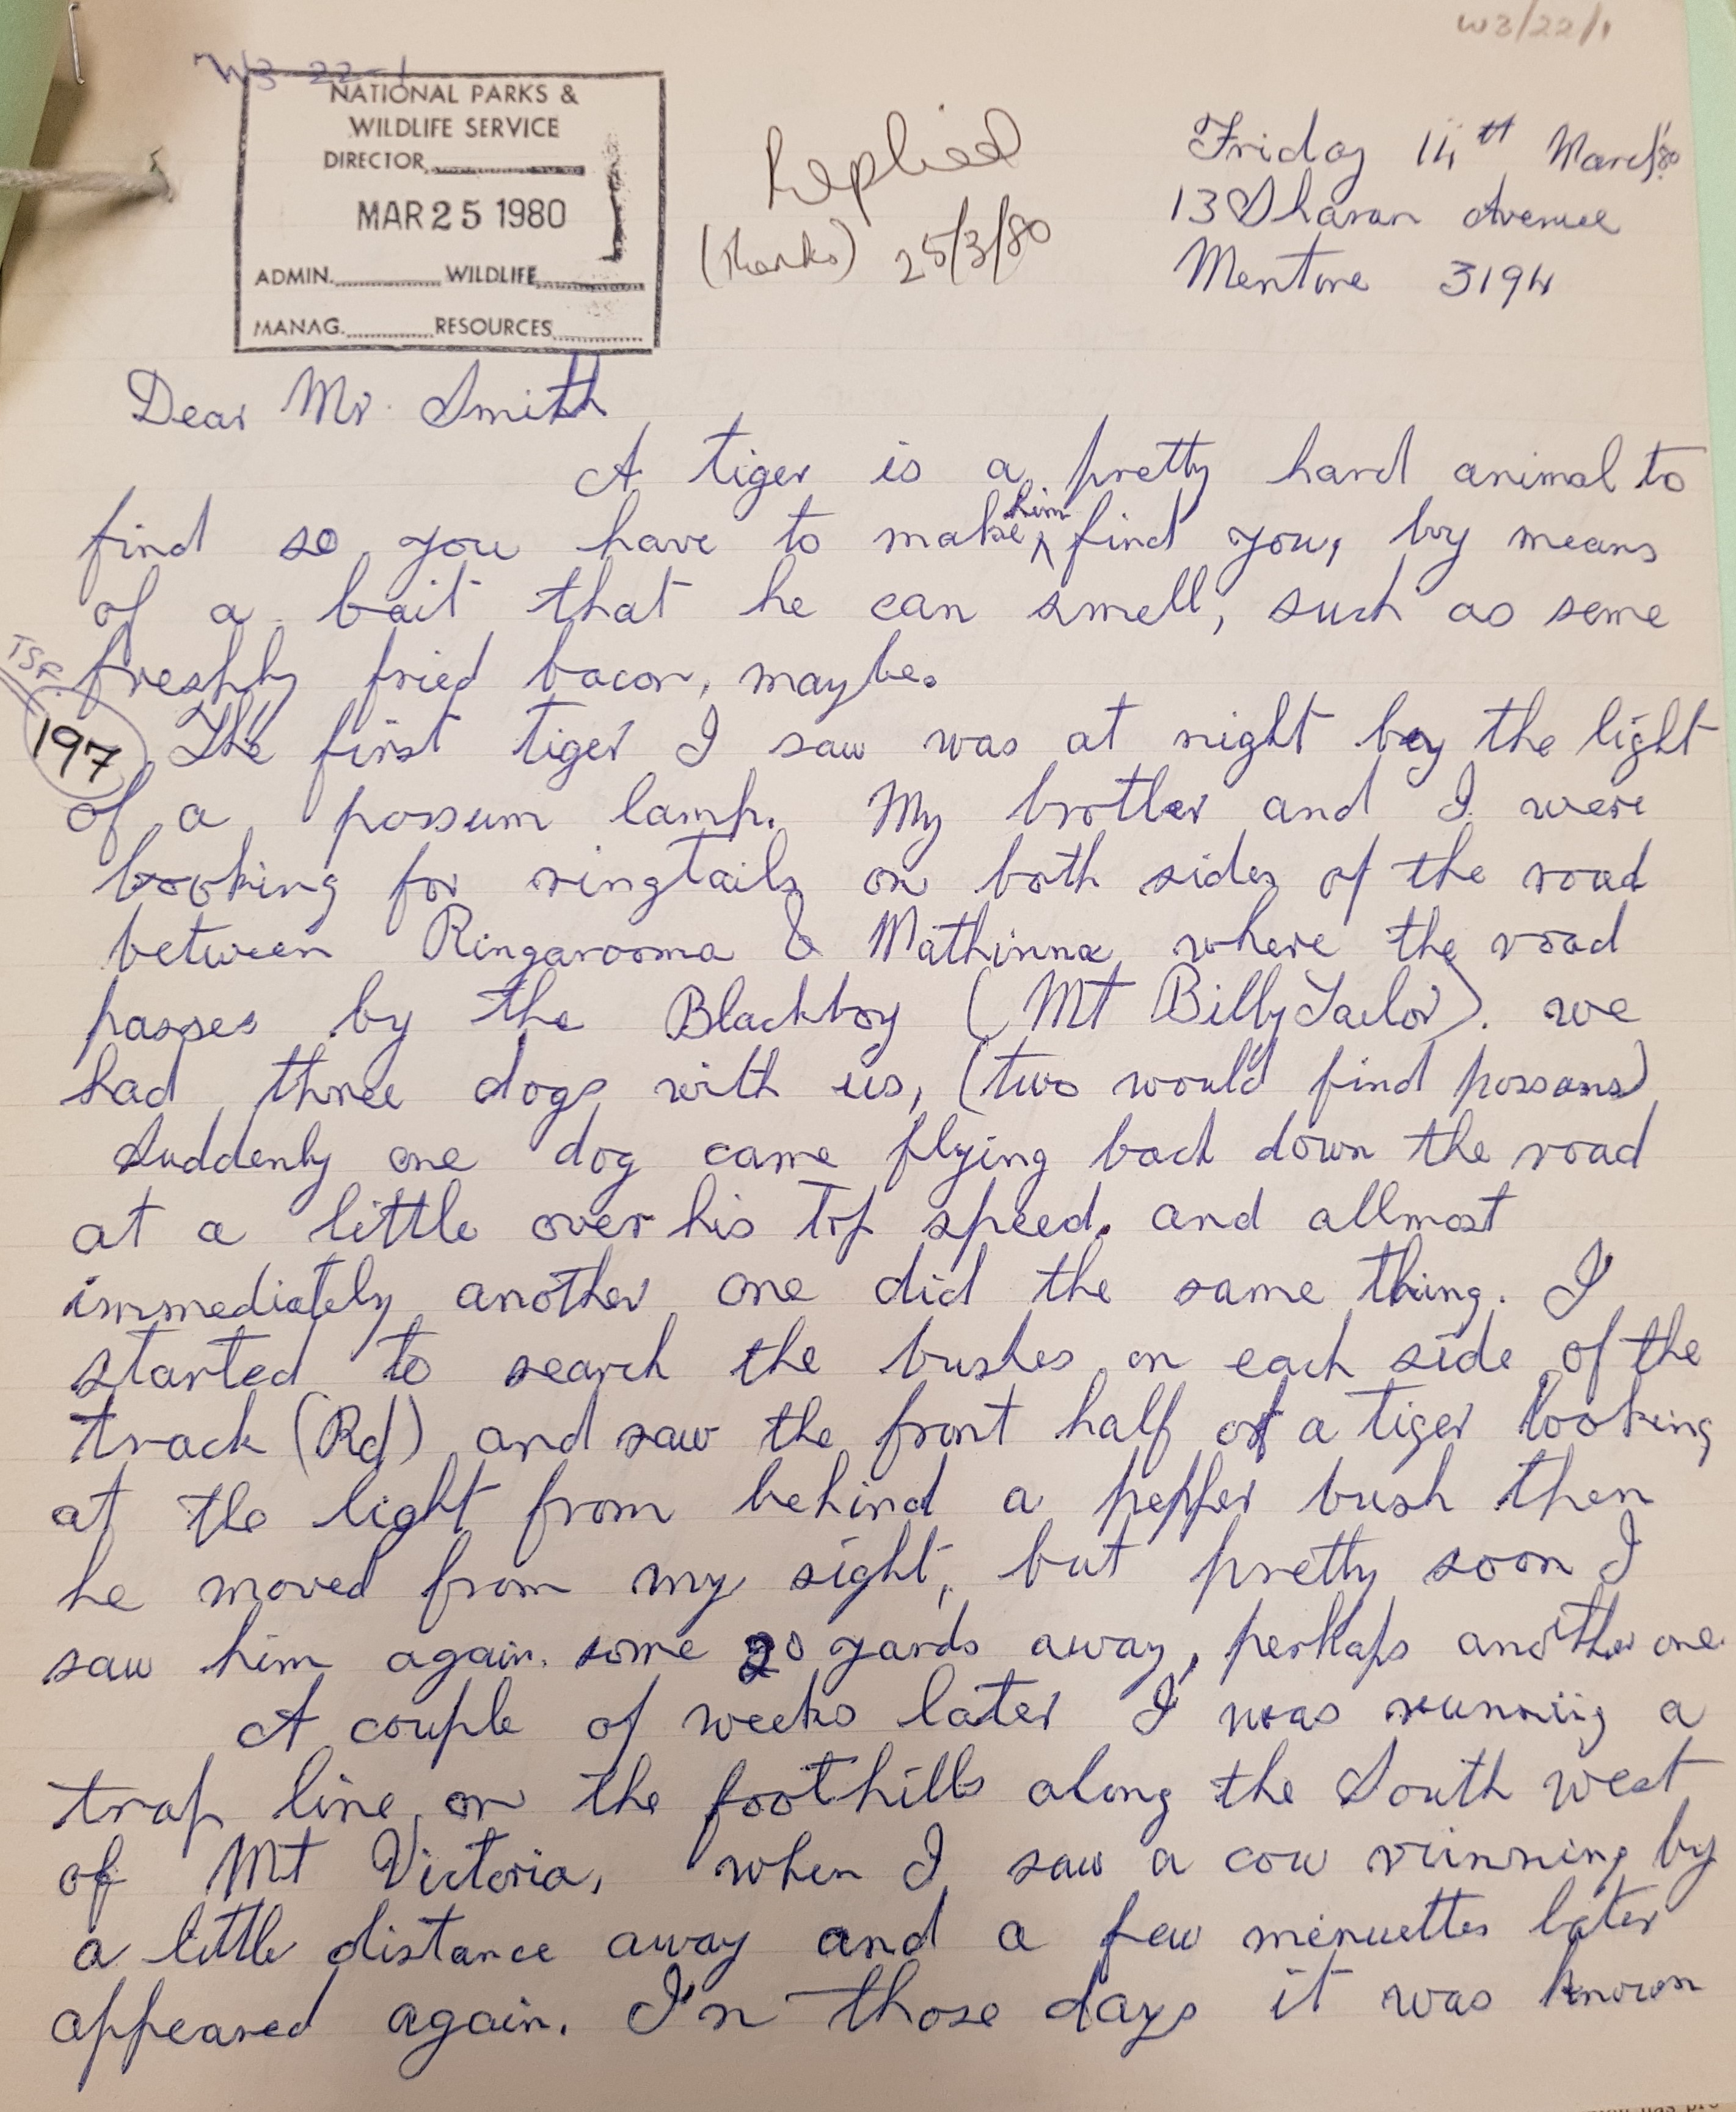 W3/22/1
W3-22-1
NATIONAL PARKS &
WILDLIFE SERVICE
DIRECTOR
MAR 25 1980
ADMIN. WILDLIFE
MANAG. RESOURCES
Replied
(thanks) 25/3/80
Friday 14th March '80
13 Sharan Avenue
Mentone 3194
Dear Mr. Smith
A tiger is a pretty hard animal to
find so you have to make him find you, by means
of a bait that he can smell, such as some
freshly fried bacon, maybe.
197
The first tiger I saw was at night by the light
of a possum lamp. My brother and I were
looking for ringtails on both sides of the road
between Ringarooma & Mathinna where the road
passes by the Blackboy (Mt Billy Tailor). we
had three dogs with us, (two would find possans)
Suddenly one dog came flying back down the road
at a little over his top speed. and allmost
immediately another one did the same thing. I
started to search the bushes on each side of the
track (Rd) and saw the front half of a tiger looking
at the light from behind a pepper bush then
he moved from my sight, but pretty soon I
saw him again. some 20 yards away, perhaps another one.
A couple of weeks later I was running a
trap line on the foothills along the South west
of Mt Victoria, when I saw a cow running by
a little distance away and a few menuettes later
appeared again. I'n those days it was known